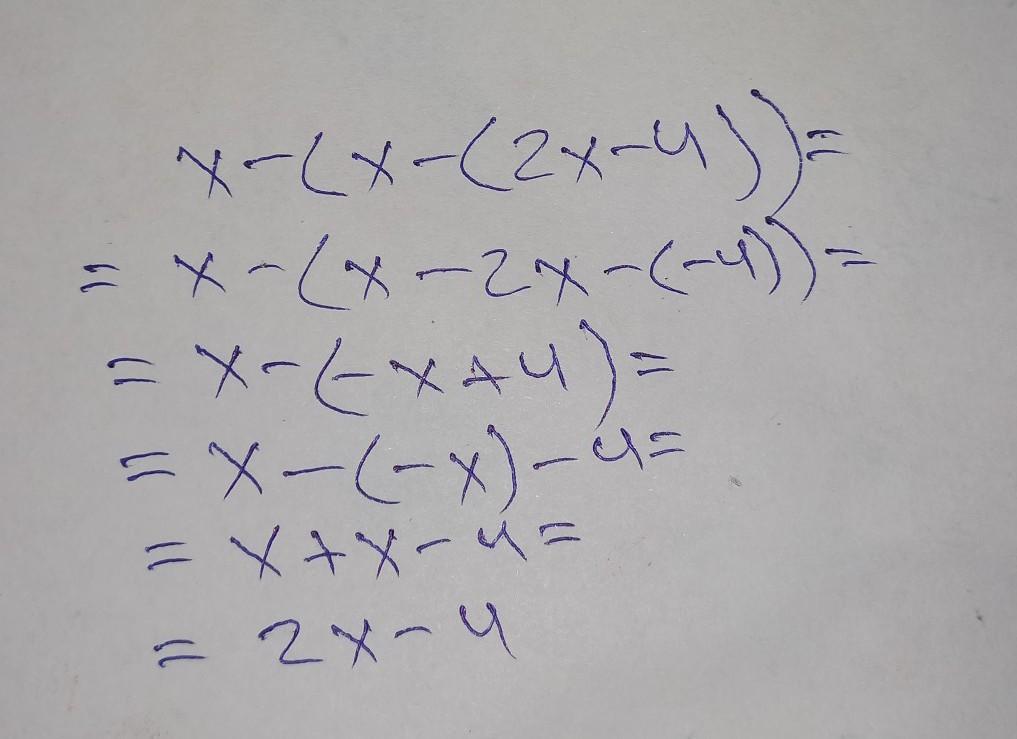 x-(x-(2x-4))=
= x-(x-2x-(-4))=
= x-(-x+4)=
= x-(-x)-4=
= x+x-4=
= 2x-4